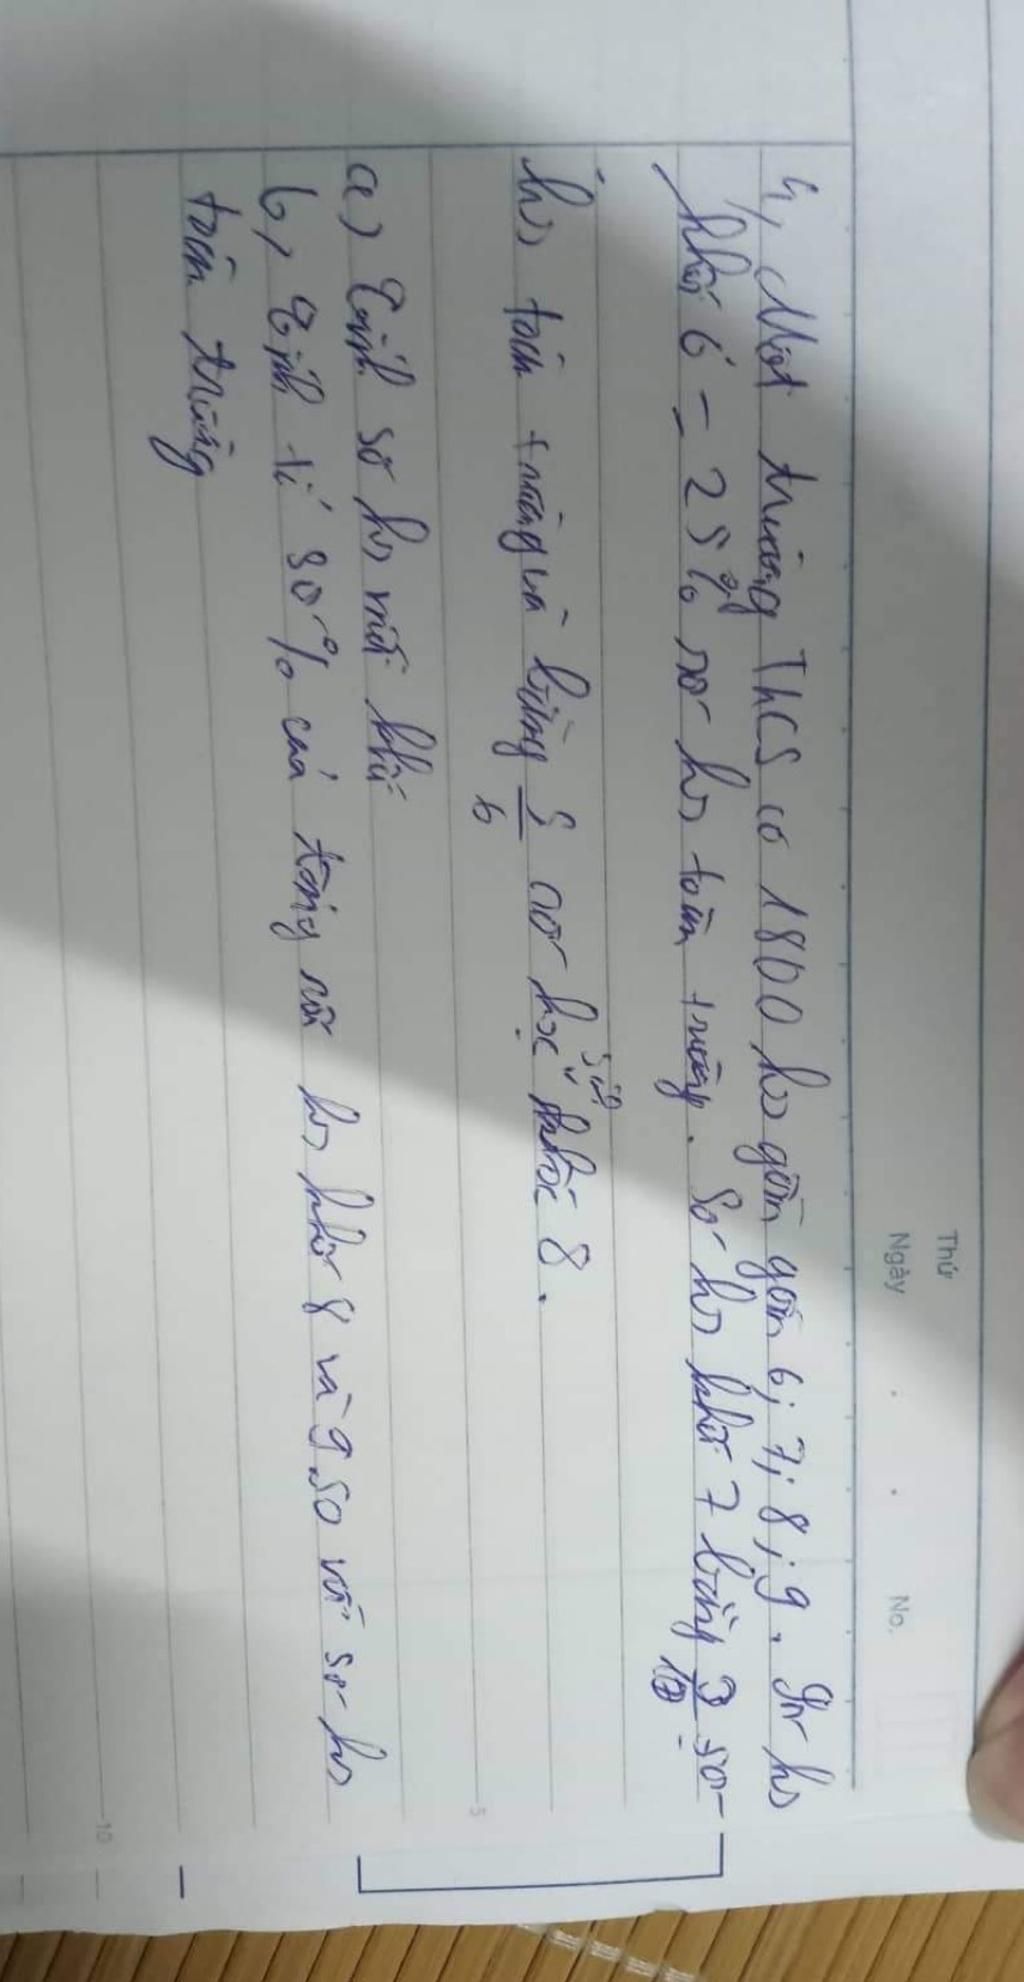 Thứ
Ngày No.
4, Một trường THCS có 1800 hs gồm gồm 6; 7; 8; 9. Số hs
khối 6 = 25% số hs toàn trường. Số hs khối 7 bằng 3/10 số
hs toàn trường và bằng 5/6 số học sinh khối 8.
a) Tính số hs mỗi khối
b, Tính tỉ số % của tổng số hs khối 8 và 9 so với số hs
toàn trường
5
10